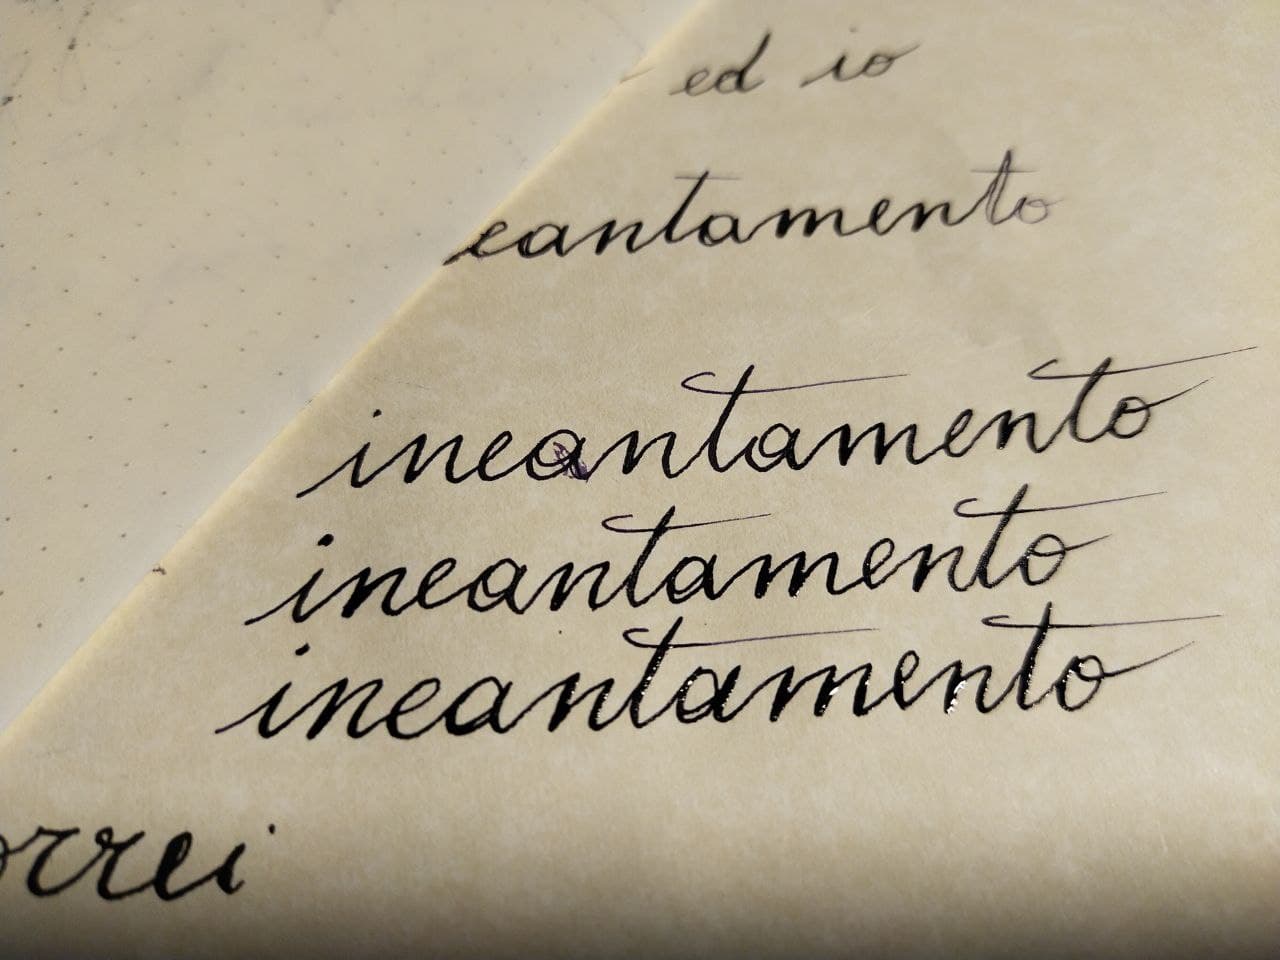 ed io
cantamento
incantamento
incantamento
incantamento
orrei